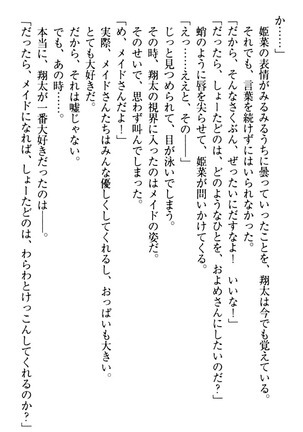 か……」
　姫菜の表情がみるみるうちに曇っていったことを、翔太は今でも覚えている。
　それでも、言葉を続けずにはいられなかった。
「だから、そんなさくぶん、ぜったいにだすなよ！　いいな！」
「だったら、しょーたどのは、どのようなひとを、およめさんにしたいのだ？」
　蛸のように唇を尖らせて、姫菜が問いかけてくる。
「えっ……ええと、その――」
　じっと見つめられて、目が泳いでしまう。
　その時、翔太の視界に入ったのはメイドの姿だ。
　そのせいで、思わず叫んでしまった。
「め、メイドさんだよ！」
　実際、メイドさんたちはみんな優しくしてくれるし、おっぱいも大きい。
　とても大好きだ。
　だから、それは嘘じゃない。
　でも、あの時……。
　本当に、翔太が一番大好きだったのは――。
「だったら、メイドになれば、しょーたどのは、わらわとけっこんしてくれるのか？」